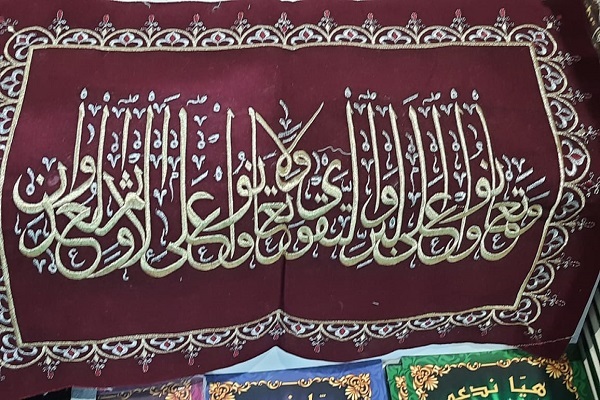 وتعاونوا على البر والتقوى ولا تعاونوا على الإثم والعدوان
هيا ندعي